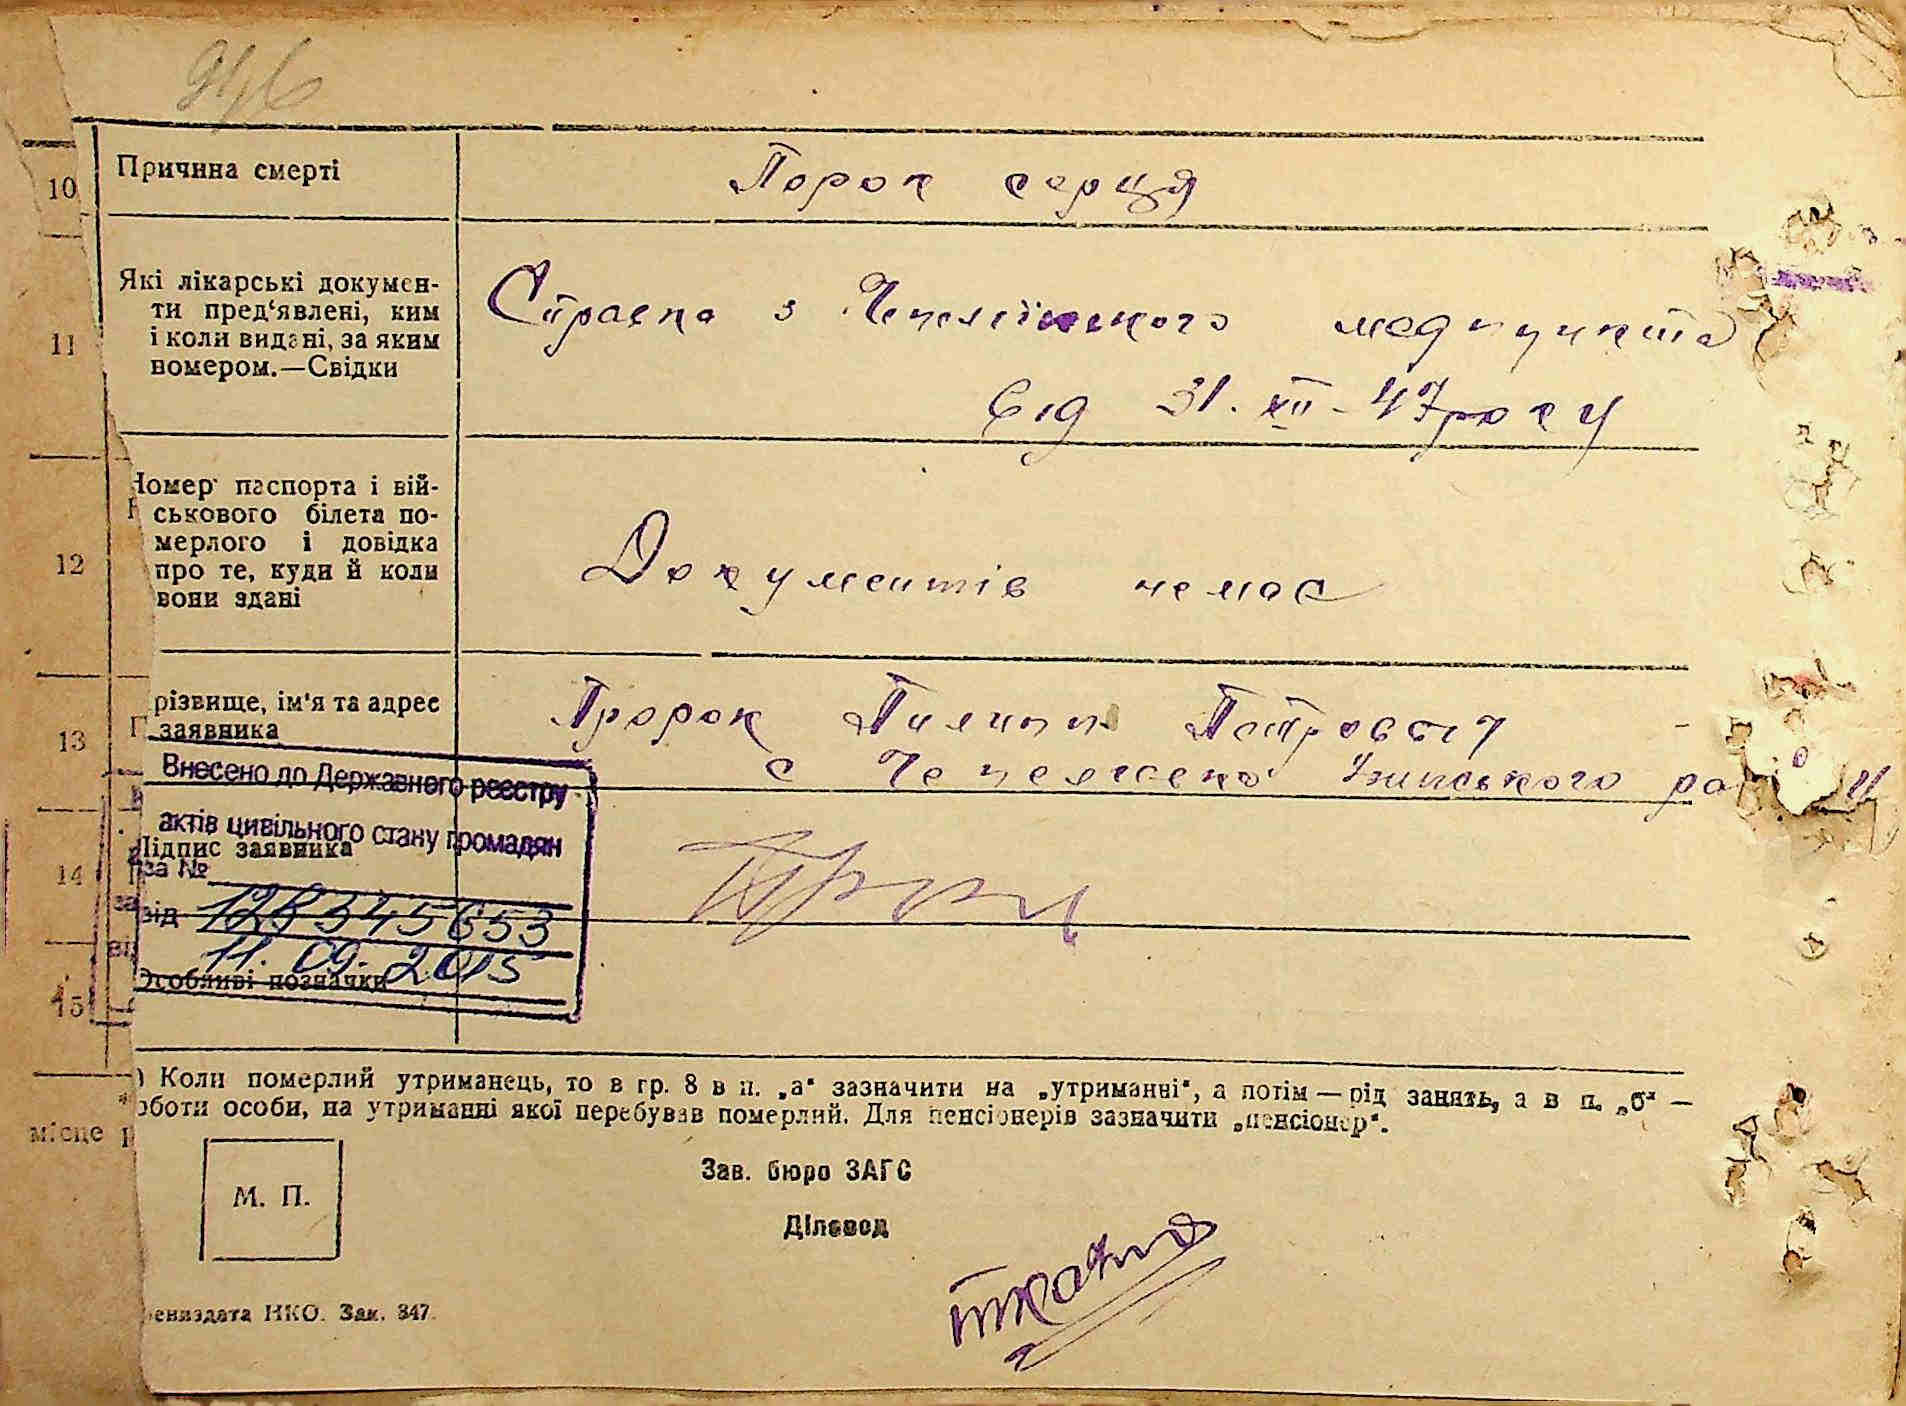 946
10 Причина смерті Порок серця
11 Які лікарські докумен-
ти пред‘явлені, ким
і коли видані, за яким
номером.—Свідки
Справка з медпункта
від 31. XII - 47 року
12 Номер паспорта і вій-
ськового білета по-
мерлого і довідка
про те, куди й коли
вони здані
Документів немає
13 різвище, ім'я та адрес
заявника
Пророк Пилип Петрович
с
14 Підпис заявника
15 Особливі позначки
Внесено до Державного реєстру
актів цивільного стану громадян
за №
від 128345653
11.09.2015
) Коли померлий утриманець, то в гр. 8 в п. „а“ зазначити на „утриманні“, а потім — рід занять, а в п. „б“ —
оботи особи, на утриманні якої перебував померлий. Для пенсіонерів зазначити „пенсіонер“.
місце
М. П.
Зав. бюро ЗАГС
Діловод
ениздата НКО. Зак. 347.